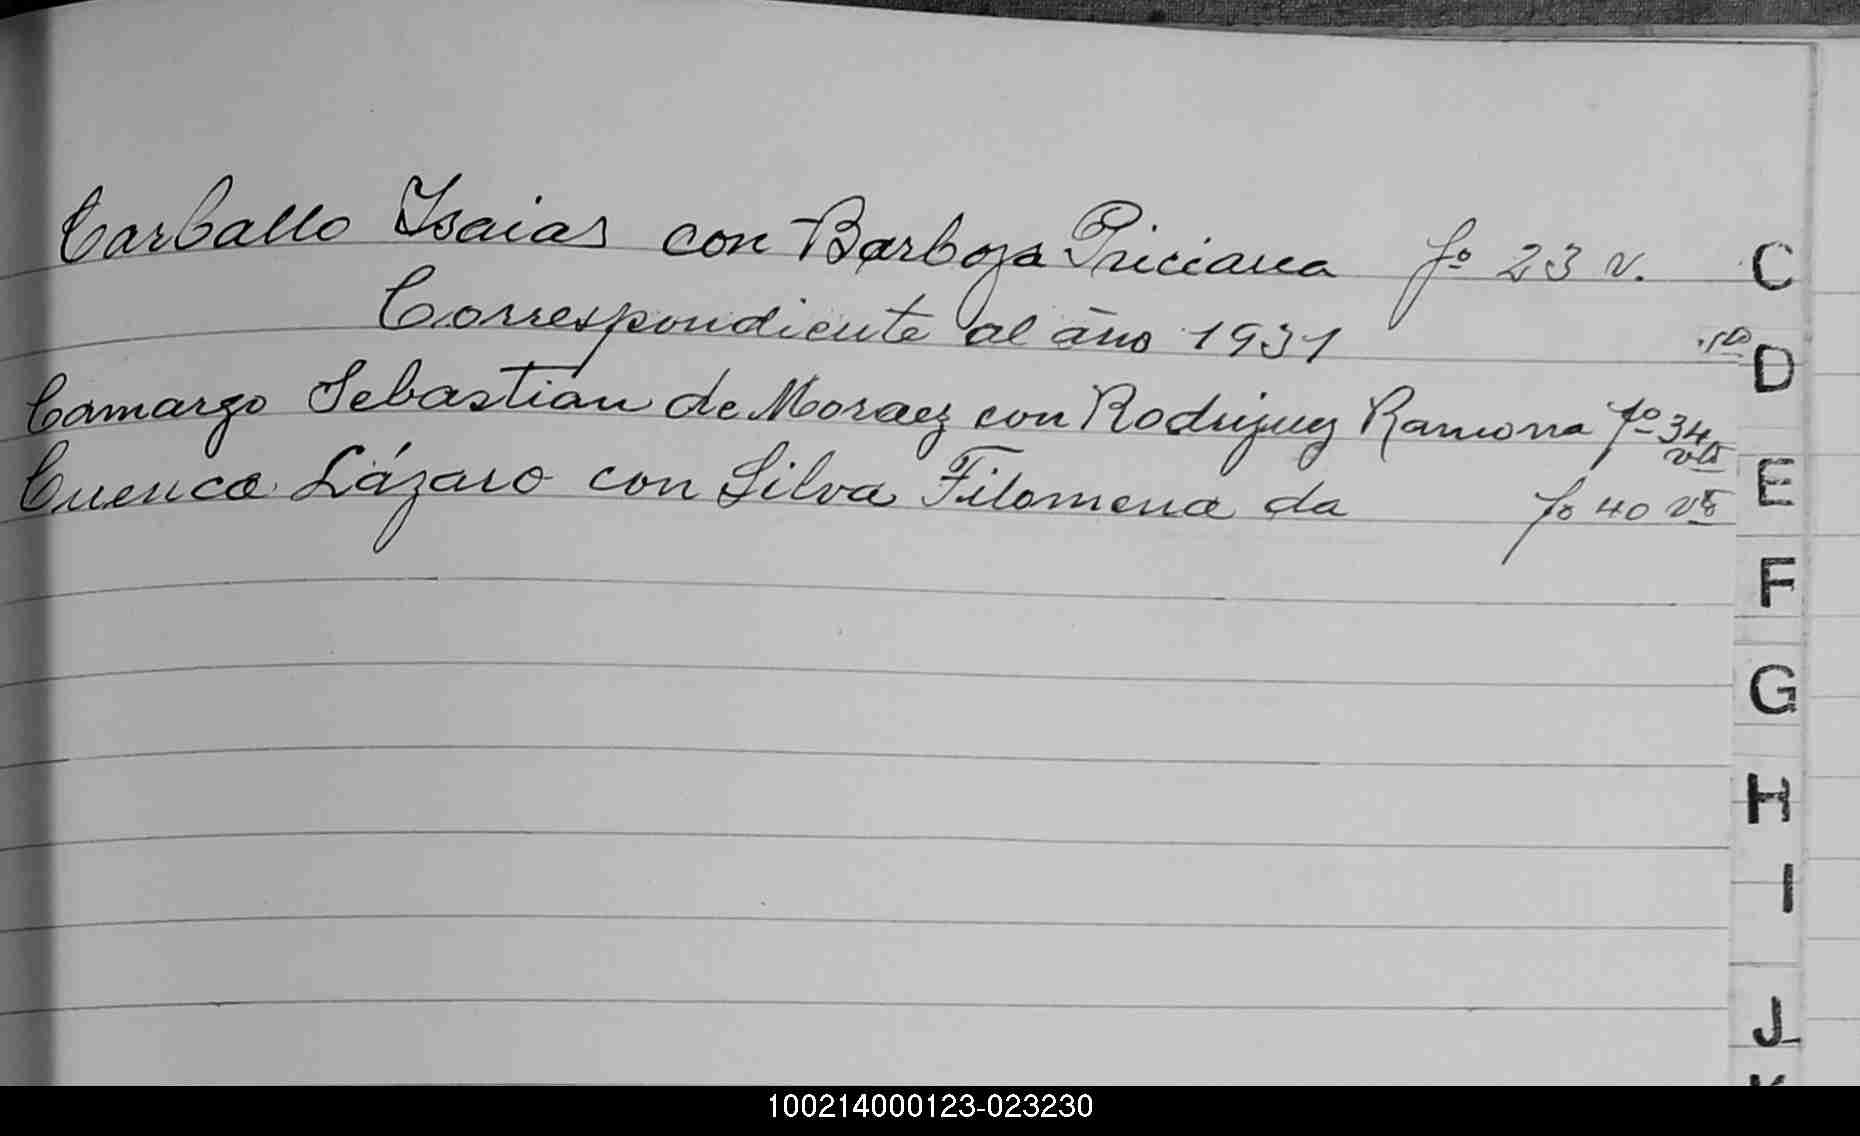 Carballo Isaias con Barboza Priciana fº 23 v.
C
Correspondiente al año 1931
D
Camargo Sebastian de Moraez con Rodriguez Ramona fº 34 vta
Cuenca Lázaro con Silva Filomena da fº 40 vta
E
F
G
H
I
J
100214000123-023230